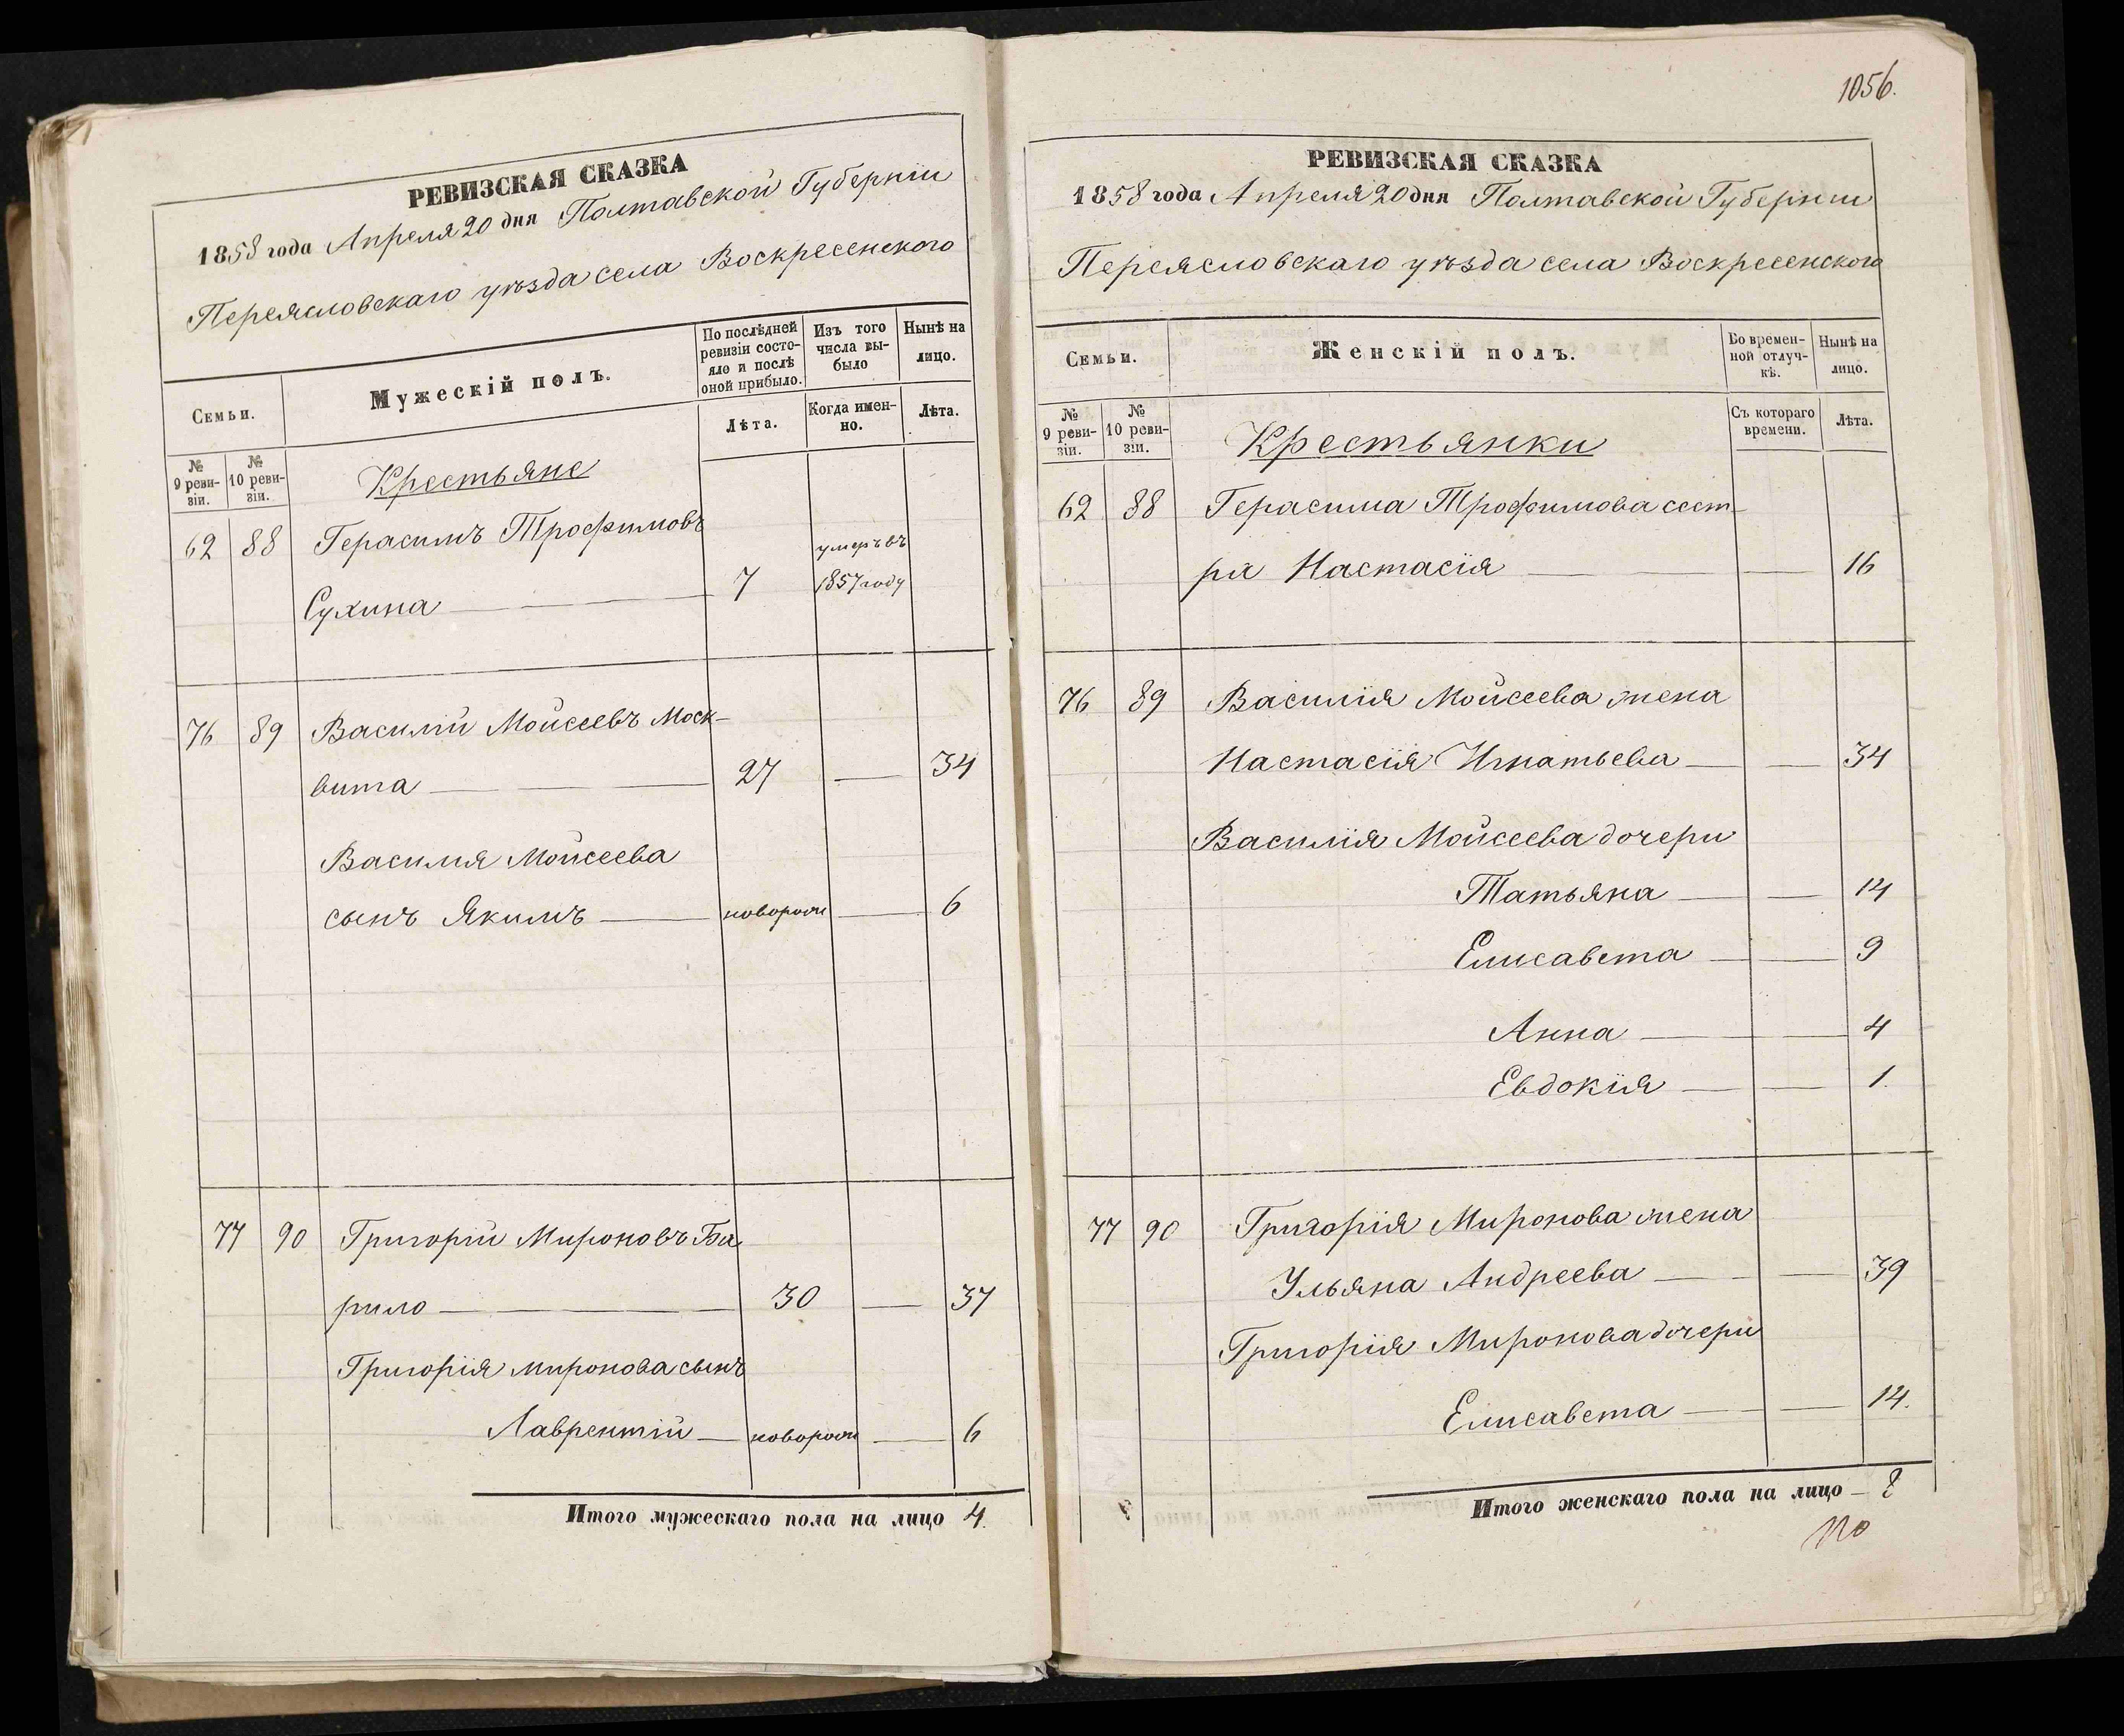 РЕВИЗСКАЯ СКАЗКА
1858 года Апреля 20 дня Полтавской Губерніи
Переясловскаго уѣзда села Воскресенского
Семьи.
Мужескій полъ.
По послѣдней ревизіи состояло и послѣ оной прибыло.
Изъ того числа выбыло
Нынѣ на лицо.
№ 9 ревизіи.
№ 10 ревизіи.
Лѣта.
Когда именно.
Лѣта.
Крестьяне
62 88 Герасимъ Трофимовъ умеръ въ
Сухина — 7 1857 году
76 89 Василій Мойсеевъ Моск-
вита — 27 — 34
Василия Мойсеева
сынъ Якимъ — новорож — 6
77 90 Григорій Мироновъ Ба
рило — 30 — 37
Григорія миронова сынъ
Лаврентій — новорож — 6
Итого мужескаго пола на лицо 4.
1056.
РЕВИЗСКАЯ СКАЗКА
1858 года Апреля 20 дня Полтавской Губерніи
Переясловскаго уѣзда села Воскресенского
Семьи.
Женскій полъ.
Во временной отлучкѣ.
Нынѣ на лицо.
№ 9 ревизіи.
№ 10 ревизіи.
Съ котораго времени.
Лѣта.
Крестьянки
62 88 Герасима Трофимова сест-
ра Настасія — 16
76 89 Василія Мойсеева жена
Настасія Игнатьева — 34
Василія Мойсеева дочери
Татьяна — 14
Елисавета — 9
Анна — 4
Евдокія — 1.
77 90 Григорія Миронова жена
Ульяна Андреева — 39
Григорія Миронова дочери
Елисавета — 14.
Итого женскаго пола на лицо — 8